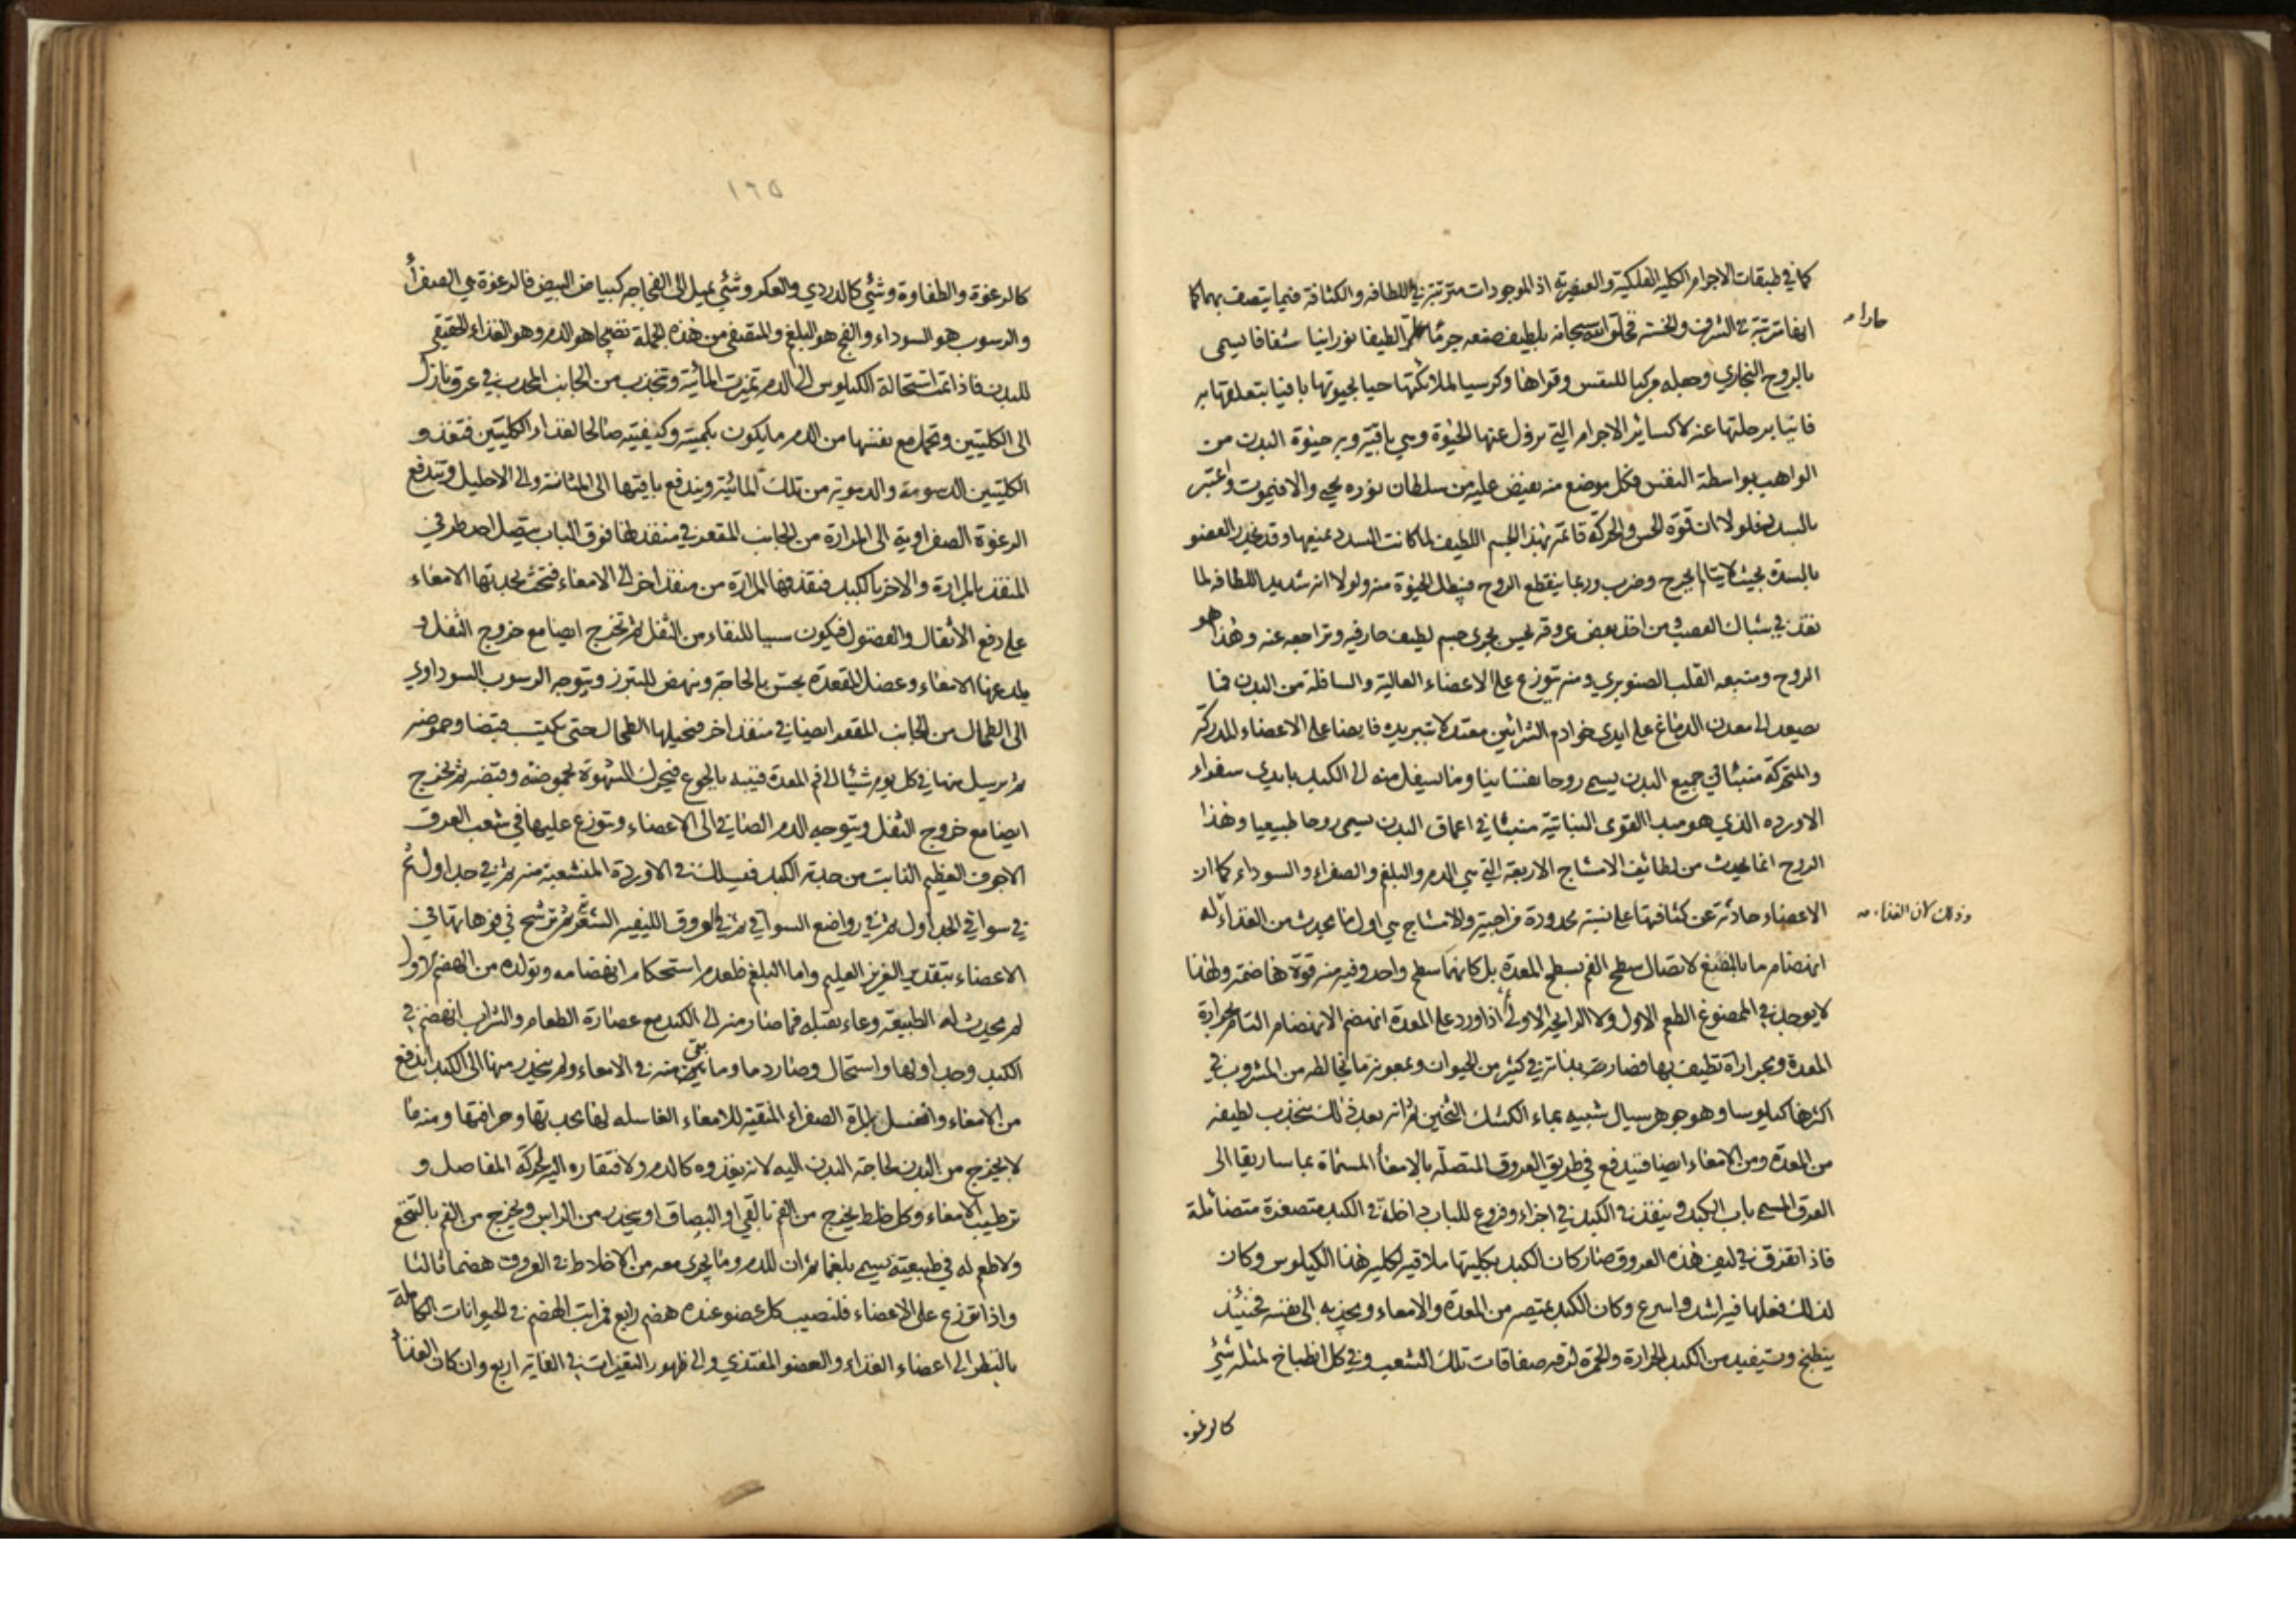 كما في طبقات الاجرام الكلية الفلكية والعنصرية اذ الموجودات مترتبة في اللطافه والكثافة فيما يتصف بهما كما
حارا
انها مترتبة في الشرف والخسة فخلق الله سبحانه بلطيف صنعه جرما حارا لطيفا نورانيا شفافا يسمى
بالروح البخاري وجعله مركبا للنفس وقواها وكرسيا لملائكتها حيا بحيوتها باقيا بتعلقها به
فانيا برحلتها عنه لا كسائر الاجرام التي يزول عنها الحيوة وهي باقية وبه حيوة البدن من
الواهب بواسطة النفس فكل موضع منه يفيض عليه من سلطان نوره يحيى والا فيموت واعتبر
بالسدد فلولا ان قوة الحس والحركة قائمة بهذا الجسم اللطيف لما كانت السدد تمنعها وقد يخدر العضو
بالسدة بحيث لا يتالم بجرح وضرب وربما ينقطع الروح فيبطل الحيوة منه ولولا انه شديد اللطافه لما
نفذ في شباك العصب ومن اخذ بعض عروقه يحس بجرى جسم لطيف حار فيه وتراجعه عنه وهذا هو
الروح ومنبعه القلب الصنوبري ومنه يتوزع على الاعضاء العالية والسافلة من البدن فما
يصعد الى معدن الدماغ على ايدي خوادم الشرائين معتدلا تبريده فايضا على الاعضاء المدركة
والمتحركة منبثا في جميع البدن يسمى روحا نفسانيا وما يسفل منه الى الكبد بايدي سفراء
الاورده الذي هو مبدا القوى النباتية منبثا في اعماق البدن يسمى روحا طبيعيا وهذا
الروح انما يحدث من لطائف الامشاج الاربعة التي هي الدم والبلغم والصفراء والسوداء كما ان
الاعضاء حادثة عن كثافتها على نسبة محدودة مزاجية والامشاج هي اول ما يحدث من الغذاء له
وذلك لان الغذاء
انهضام ما بالمضغ لاتصال سطح الفم بسطح المعدة بل كانهما سطح واحد وفيه منه قوة هاضمة ولهذا
لا يوجد في الممضوغ الطعم الاول ولا الرايحه الاولى اذا ورد على المعدة انهضم الانهضام التام بحرارة
المعدة وبحرارة تطيف بها فصار بذاته في كثير من الحيوان وبمعونة ما يخالطه من المشروب في
اكثرها كيلوسا وهو جوهر سيال شبيه بماء الكشك الثخين ثم انه بعد ذلك ينجذب لطيفه
من المعدة ومن الامعاء ايضا فيندفع في طريق العروق المتصلة بالامعاء المسماة بماساريقا الى
العرق المسمى باب الكبد وينفذ في الكبد في اجزاء وفروع للباب داخلة في الكبد متصغرة متضائلة
فاذا تفرق في ليف هذه العروق صار كان الكبد بكليتها ملاقية لكلية هذا الكيلوس وكان
لذلك فعلها فيه اشد واسرع وكان الكبد يمتصه من المعدة والامعاء ويجذبه الى نفسه فحينئذ
ينطبخ ويستفيد من الكبد الحرارة والحمرة لرقه صفاقات تلك الشعب وفي كل انطباخ لمثله شئ
كالرغوة
١٦٥
كالرغوة والطفاوة وشئ كالدردي والعكر وشئ يميل الى الفجاجه كبياض البيض فالرغوة هي الصفراء
والرسوب هو السوداء والفج هو البلغم والمتصفى من هذه الجملة نضيجا هو الدم وهو الغذاء الحقيقي
للبدن فاذا تمت استحالة الكيلوس الى الدم تميزت المائية وتنجذب من الجانب المحدب في عرق نازل
الى الكليتين وتحمل مع نفسها من الدم ما يكون بكميته وكيفيته صالحا لغذاء الكليتين فتغذو
الكليتين الدسومة والدموية من تلك المائية ويندفع باقيتها الى المثانة والى الاحليل وتندفع
الرغوة الصفراوية الى المرارة من الجانب المقعر في منفذ لها فوق الباب يتصل احد طرفي
المنفذ بالمرارة والاخر بالكبد فتقذفها المرارة من منفذ اخر الى الامعاء فتحث بحدتها الامعاء
على دفع الاثقال والفضول فيكون سببا للنقاء من الثقل ثم تخرج ايضا مع خروج الثفل و
يلدغها الامعاء وعضل المقعدة يحس بالحاجة وينهض للتبرز ويتوجه الرسوب السوداوي
الى الطحال من الجانب المقعر ايضا في منفذ اخر فيحيلها الطحال حتى يكتسب قبضا وحموضه
ثم يرسل منها في كل يوم شيئا الى فم المعدة فينبه بالجوع فيحرك الشهوة بحموضته وقبضه ثم يخرج
ايضا مع خروج الثفل ويتوجه الدم الصافي الى الاعضاء ويتوزع عليها في شعب العرق
الاجوف العظيم النابت من حدبة الكبد فيسلك في الاوردة المنشعبة منه ثم في جداول ثم
في سواقي الجداول ثم في رواضع السواقي ثم في العروق الليفيه الشعريه ثم ترشح في فوهاتها في
الاعضاء بتقدير العزيز العليم واما البلغم فلعدم استحكام انهضامه وتولده من الهضم الاول
لم يحدث له الطبيعة وعاء يقبله فما صار منه الى الكبد مع عصارة الطعام والشراب انهضم في
الكبد وجداولها واستحال وصار دما وما بقي منه في الامعاء ولم ينحدر منها الى الكبد اندفع
من الامعاء وانغسل بالمرة الصفراء المنقية للامعاء الغاسله لها بحدتها وحرافتها ومنه ما
لا يخرج من البدن لحاجة البدن اليه لانه يغذوه كالدم ولافتقاره اليه لحركة المفاصل و
ترطيب الامعاء وكل خلط يخرج من الفم بالقي او البصاق او ينحدر من الراس ويخرج من الفم بالتنخع
ولا طعم له في طبيعته يسمى بلغما ثم ان للدم وما يجري معه من الاخلاط في العروق هضما ثالثا
واذا توزع على الاعضاء فلنصيب كل عضو عنده هضم رابع فمراتب الهضم في الحيوانات الكاملة
بالنظر الى اعضاء الغذاء والعضو المغتذي والى ظهور التغيرات في الغاية اربع وان كان الغذاء